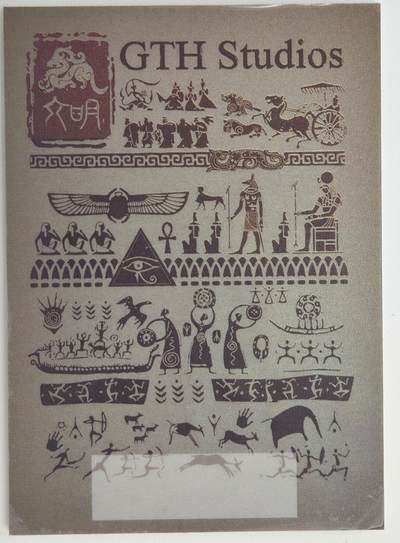 GTH Studios
文明